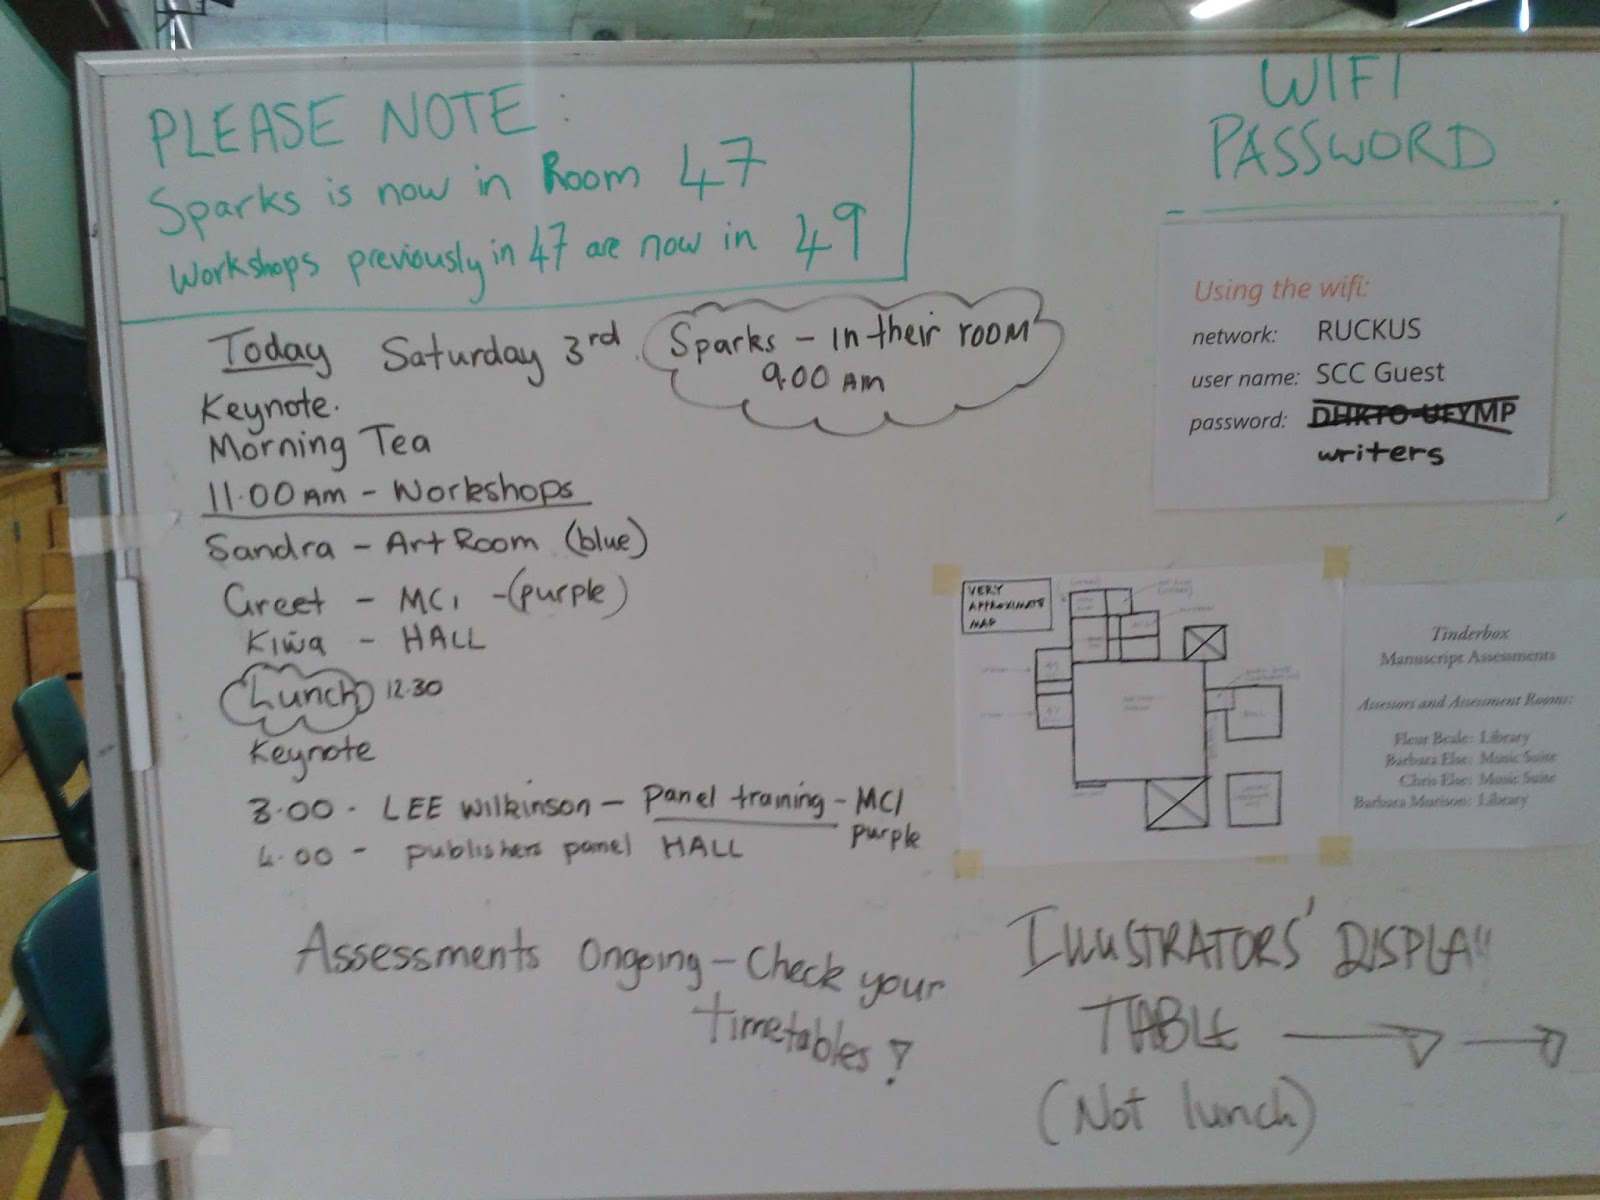 PLEASE NOTE:
Sparks is now in Room 47
Workshops previously in 47 are now in 49
Today Saturday 3rd.
Sparks - In their room
9.00 AM
Keynote.
Morning Tea
11.00 AM - Workshops
Sandra - Art Room (blue)
Greet - MC1 - (purple)
Kiwa - HALL
Lunch 12.30
Keynote
3.00 - LEE Wilkinson - Panel training - MC1
purple
4.00 - publishers panel HALL
Assessments Ongoing - Check your
timetables!
WIFI
PASSWORD
Using the wifi:
network: RUCKUS
user name: SCC Guest
password: DHKTO-UFYMP
writers
VERY
APPROXIMATE
MAP
Tinderbox
Manuscript Assessments
Assessors and Assessment Rooms:
Fleur Beale: Library
Barbara Else: Music Suite
Chris Else: Music Suite
Barbara Murison: Library
ILLUSTRATORS' DISPLAY
TABLE
(Not lunch)